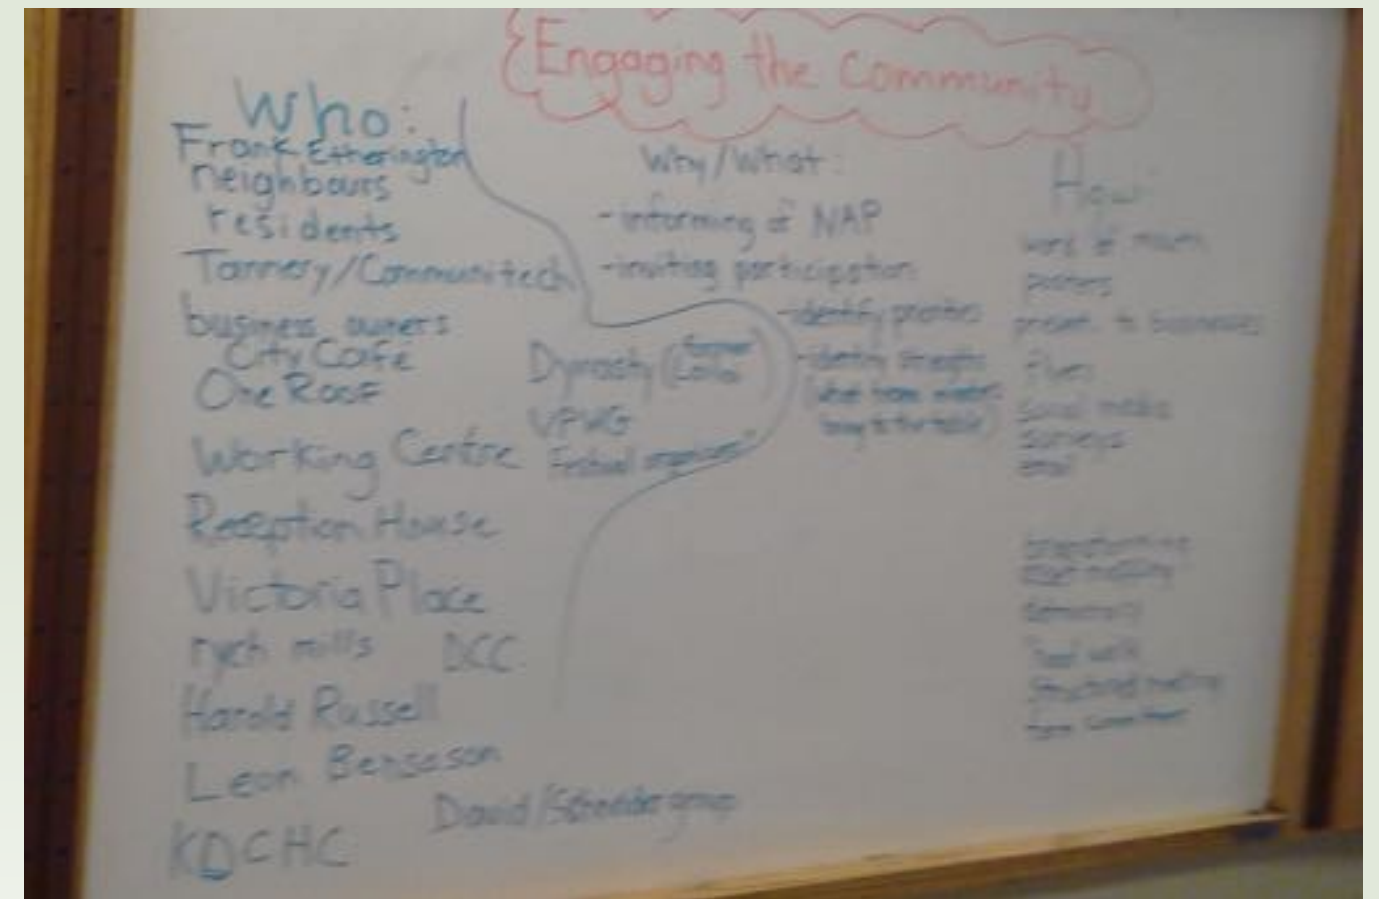 Engaging the Community
Who:
Frank Etherington
neighbours
residents
Tannery/Communitech
business owners
City Cafe
One Roof
Working Centre
Reception House
Victoria Place
rych mills DCC
Harold Russell
Leon Bensason
David/Schneider group
KDCHC
Dynasty (former
VPWG
Festival organizers
Why/What:
-informing of NAP
-inviting participation
-identify priorities
-identify strengths
bring to the table)
How:
word of mouth
posters
present. to businesses
flyers
social media
surveys
email
brainstorming
asset mapping
democracy
structured meeting
form committees